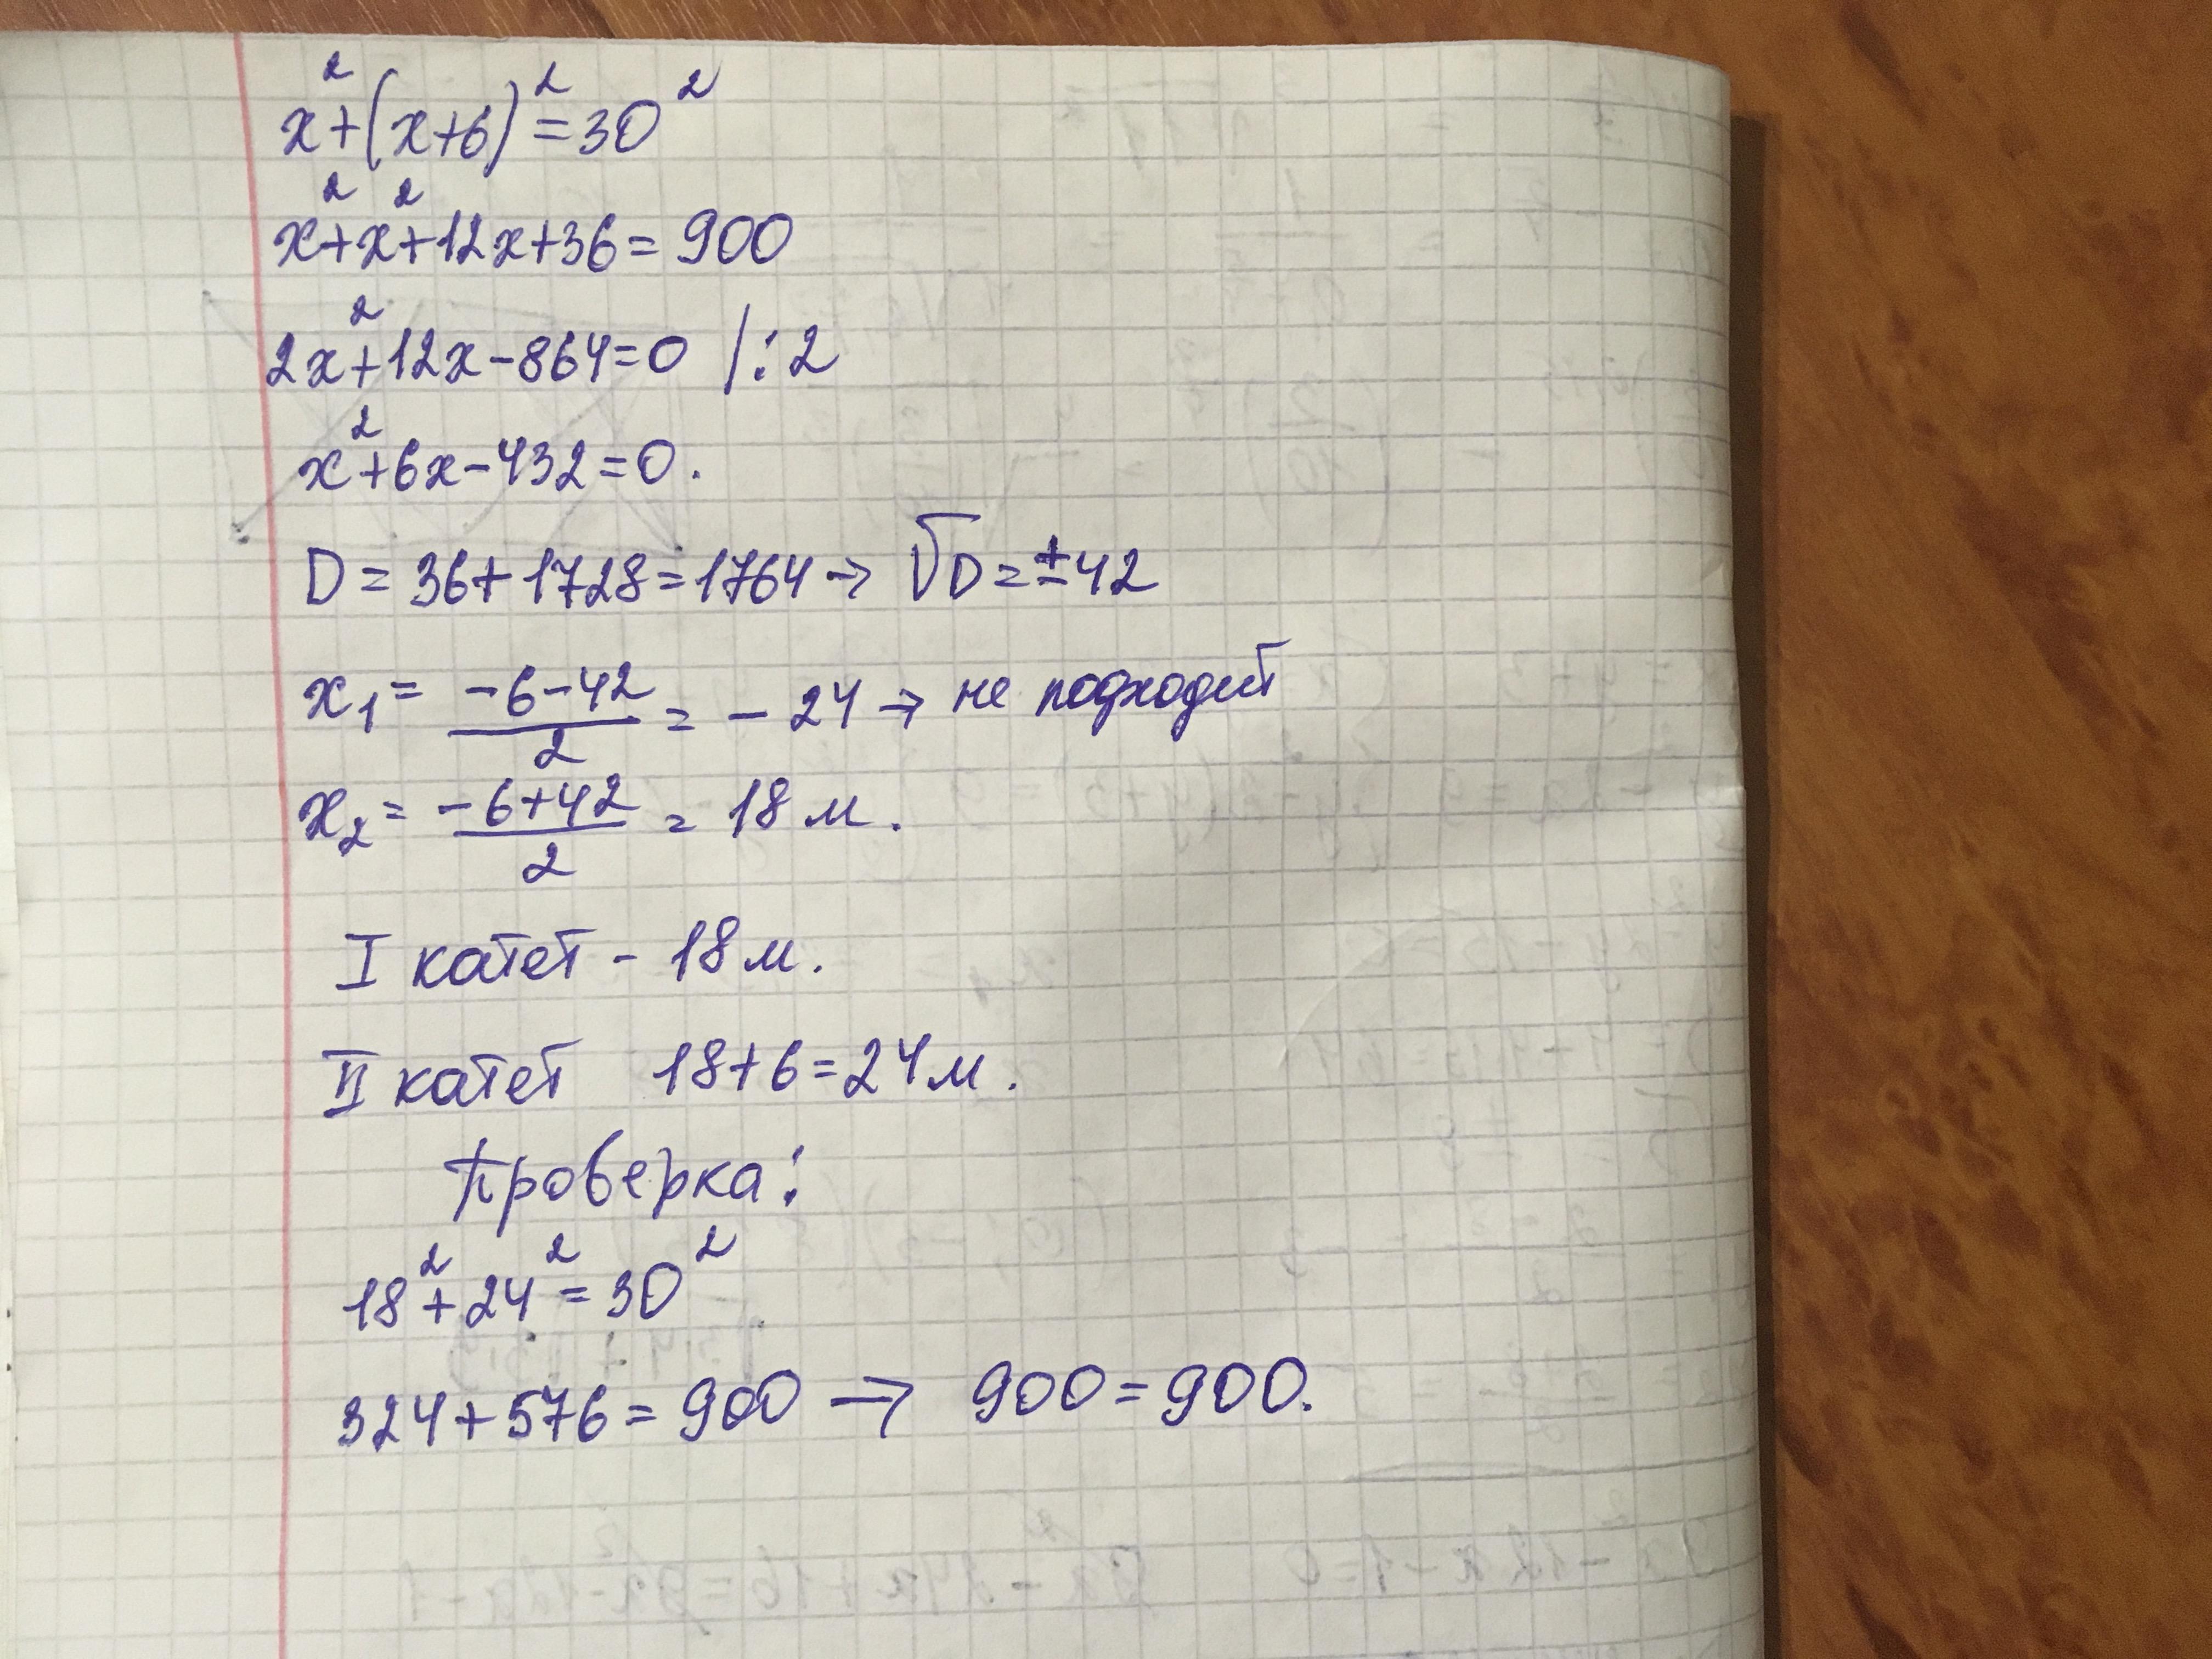 x²+(x+6)²=30²
x²+x²+12x+36=900
2x²+12x-864=0 /:2
x²+6x-432=0.
D=36+1728=1764→ √D=±42
x₁= (-6-42)/2 = -24→ не подходит
x₂= (-6+42)/2 = 18м.
I катет - 18м.
II катет 18+6=24м.
Проверка:
18²+24²=30²
324+576=900 → 900=900.